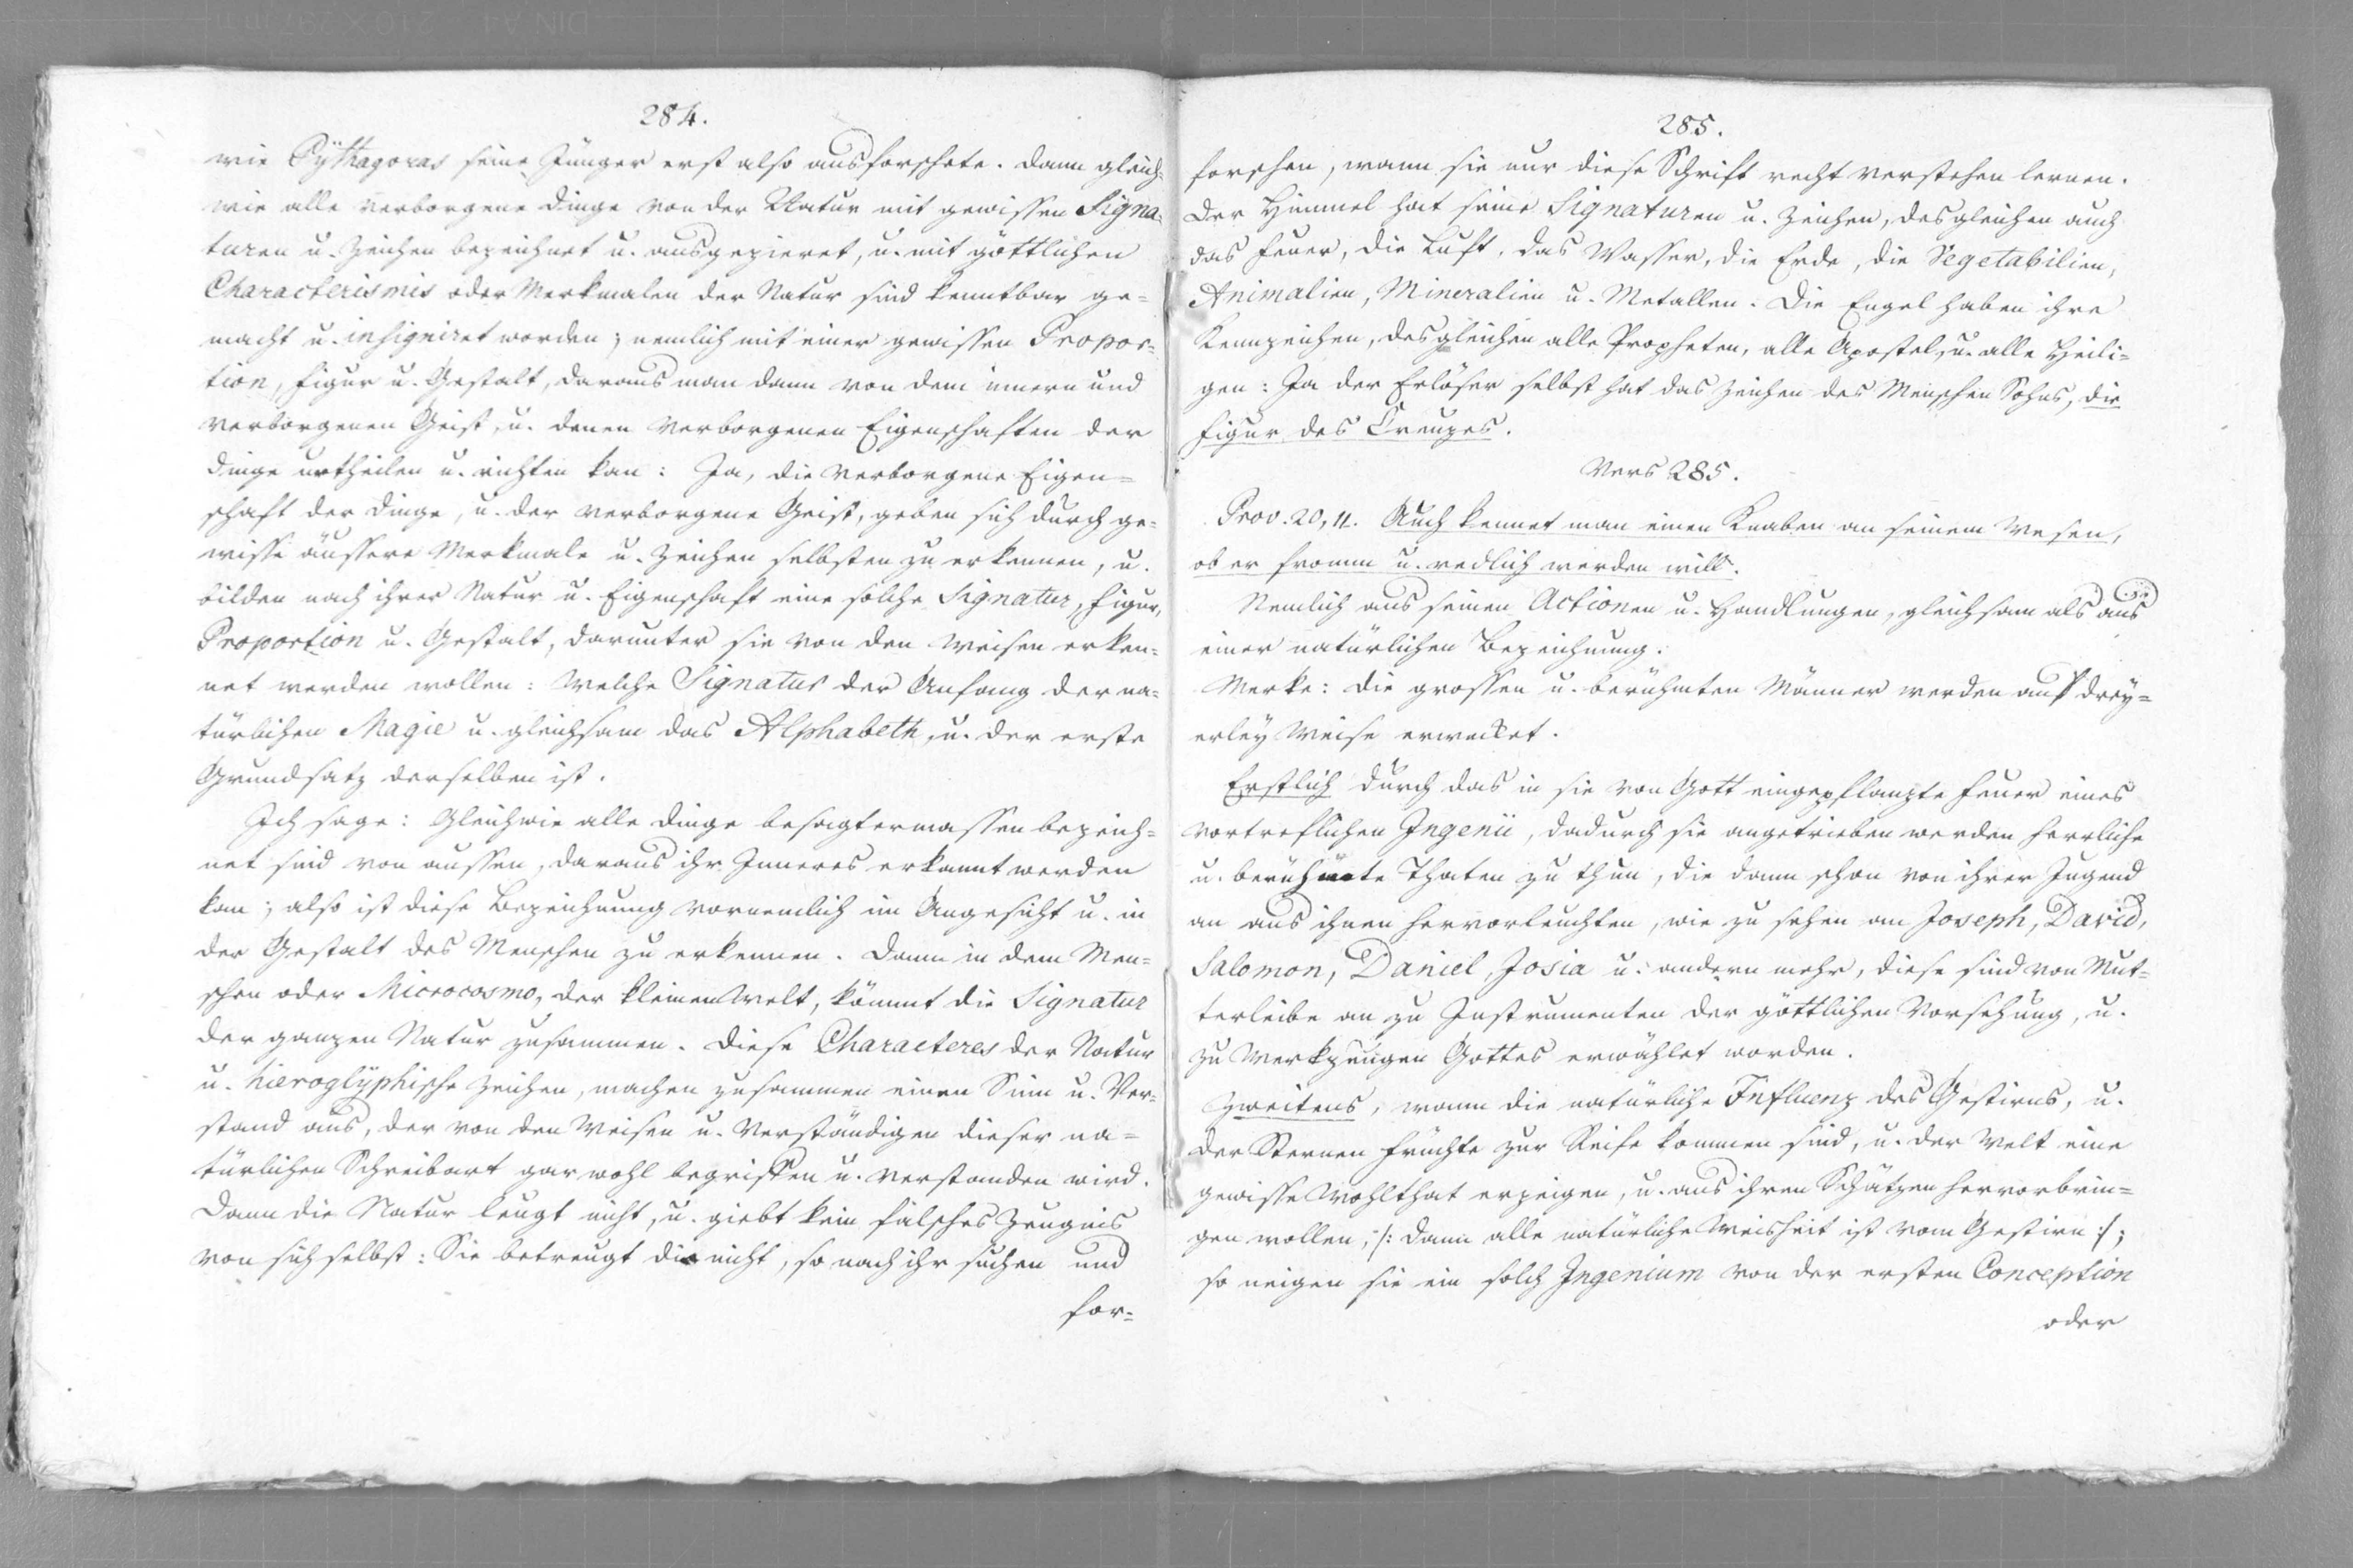 284.
wie Pÿthagoras seine Jünger erst also ausforschete. Dann gleich=
wie alle verborgene Dinge von der Natur mit gewissen Signa=
turen u. Zeichen bezeichnet u. ausgezieret, u. mit göttlichen
Characterismis oder Merkmalen der Natur sind kenntbar ge=
macht u. insigniret worden; nemlich mit einer gewissen Propor=
tion, Figur u. Gestalt, daraus man dann von dem innern und
verborgenen Geist, u. denen verborgenen Eigenschaften der
Dinge urtheilen u. richten kan: Ja, die verborgene Eigen=
schaft der Dinge, u. der verborgene Geist, geben sich durch ge=
wisse äussere Merkmale u. Zeichen selbsten zu erkennen, u.
bilden nach ihrer Natur u. Eigenschaft eine solche Signatur, Figur,
Proportion u. Gestalt, darunter sie von den Weisen erken=
net werden wollen: Welche Signatur der Anfang der na=
türlichen Magie u. gleichsam das Alphabeth, u. der erste
Grundsatz derselben ist.
Ich sage: Gleichwie alle Dinge besagtermassen bezeich=
net sind von aussen, daraus ihr Inneres erkannt werden
kan; also ist diese Bezeichnung vornemlich im Angesicht u. in
der Gestalt des Menschen zu erkennen. Dann in dem Men=
schen oder Microcosmo, der kleinen Welt, kömmt die Signatur
der ganzen Natur zusammen. Diese Characteres der Natur
u. hieroglÿphische Zeichen, machen zusammen einen Sinn u. Ver=
stand aus, der von den Weisen u. Verständigen dieser na=
türlichen Schreibart gar wohl begriffen u. verstanden wird.
Dann die Natur leugt nicht, u. giebt kein falsches Zeugnis
von sich selbst: Sie betreugt die nicht, so nach ihr suchen und
for=
285.
forschen, wann sie nur diese Schrift recht verstehen lernen.
Der Himmel hat seine Signaturen u. Zeichen, desgleichen auch
das Feuer, die Luft, das Wasser, die Erde, die Vegetabilien,
Animalien, Mineralien u. Metallen. Die Engel haben ihre
Kennzeichen, desgleichen alle Propheten, alle Apostel, u. alle Heili=
gen: Ja der Erlöser selbst hat das Zeichen des Menschen Sohns, die
Figur des Creuzes.
Vers 285.
Prov. 20, 11. Auch kennet man einen Knaben an seinem Wesen,
ob er fromm u. redlich werden will.
Nemlich aus seinen Actionen u. Handlungen, gleichsam als aus
einer natürlichen Bezeichnung.
Merke: Die grossen u. berühmten Männer werden auf drey=
erley Weise erwecket.
Erstlich durch das in sie von Gott eingepflanzte Feuer eines
vortreflichen Ingenii, dadurch sie angetrieben werden herrliche
u. berühmte Thaten zu thun, die dann schon von ihrer Jugend
an aus ihnen hervorleuchten, wie zu sehen an Joseph, David,
Salomon, Daniel, Josia u. andern mehr, diese sind von Mut=
terleibe an zu Instrumenten der göttlichen Vorsehung, u.
zu Werkzeugen Gottes erwählet worden.
Zweitens, wann die natürliche Influenz des Gestirns, u.
der Sternen Früchte zur Reife kommen sind, u. der Welt eine
gewisse Wohlthat erzeigen, u. aus ihren Schätzen hervorbrin=
gen wollen, /: dann alle natürliche Weisheit ist vom Gestirn :/;
so neigen sie ein solch Ingenium von der ersten Conception
oder